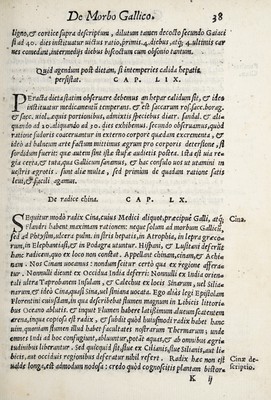 De Morbo Gallico. 38
ligno, & cortice supra descriptum, dilutum tamen decocto secundo Gaiaci
si ad 40. dies instituatur victus ratio, primis 4. diebus, atq; 4. ultimis car
nes comedant, intermedijs diebus biscoctum cum obsonio tantum.
Quid agendum post dietam, si intemperies calida hepatis
persistat. CAP. LIX.
PEracta dieta statim observare debemus an hepar calidum sit, & idea
instituatur medicamenti temperans. & est saccarum rosac. borag.
& sacc. viol. equis portionibus, admixtis speciebus diar. sandal. & ali
quando ad 20. aliquando ad 30. dies exhibemus. secundo observamus, quòd
ratione sudoris coacervatur in externo corpore quædam excrementa, &
ideò ad balneum arte factum mittimus ægrum pro corporis detersione, si
sordidum fuerit: quæ autem sint ista stuphæ audietis postea. Ista est via re
gia certa, & tuta, qua Gallicum sanamus, & hac consulo vos ut utamini in
vestris ægrotis. sunt aliæ multæ, sed primùm de quadam ratione satis
leui, & facili agamus.
De radice china. CAP. LX.
SEquitur modò radix Cina, cuius Medici aliquot, præcipuè Galli, atq; Cina.
Flandri habent maximam rationem: neque solum ad morbum Gallicũ,
sed ad Phthysim, ulcera pulm. in istris hepatis, in Atrophia, in lepra græco-
rum, in Elephantiasi, & in Podagra utuntur. Hispani, & Lusitani detulere
hanc radicem, quæ ex loco non constat. Appellant chinam, cinam, & Achi-
nam. Nos Cinam vocamus: nondum scitur certò qua ex regione affera-
tur. Nonnulli dicunt ex Occidua India deferri: Nonnulli ex India orien-
tali ultra Taprobanem Insulam, & Calechut ex locis Sinarum, vel Silina-
rum, & ideò Cina, quasi Sina, vel siliana vocatur. Ego aliàs legi Epistolam
Florentini cuiusdam, in qua describebat flumen magnum in Libicis littorib
bus Oceano ablutis. & inquit Flumen habere latissimum alueum featentem
arena, inque copiosa est radix, & subdit quòd huiusmodi radix habet hanc
uim, quoniam flumen illud habet facultates nostrarum Thermarum; unde
omnes Indi ad hoc confugiunt, abluuntur, potãt aquas, & ab omnibus ægri
tudinibus liberantur. Sed quicquid sit, siue ex Cinalis, siue Silianis, aut Li-
bicis, aut occiduis regionibus deferatur nihil refert. Radix hæc non est Cinæ de-
ualde longa, est admodum nodosa: credo quòd cognoscitis plantam bistor- scriptio.
K ij